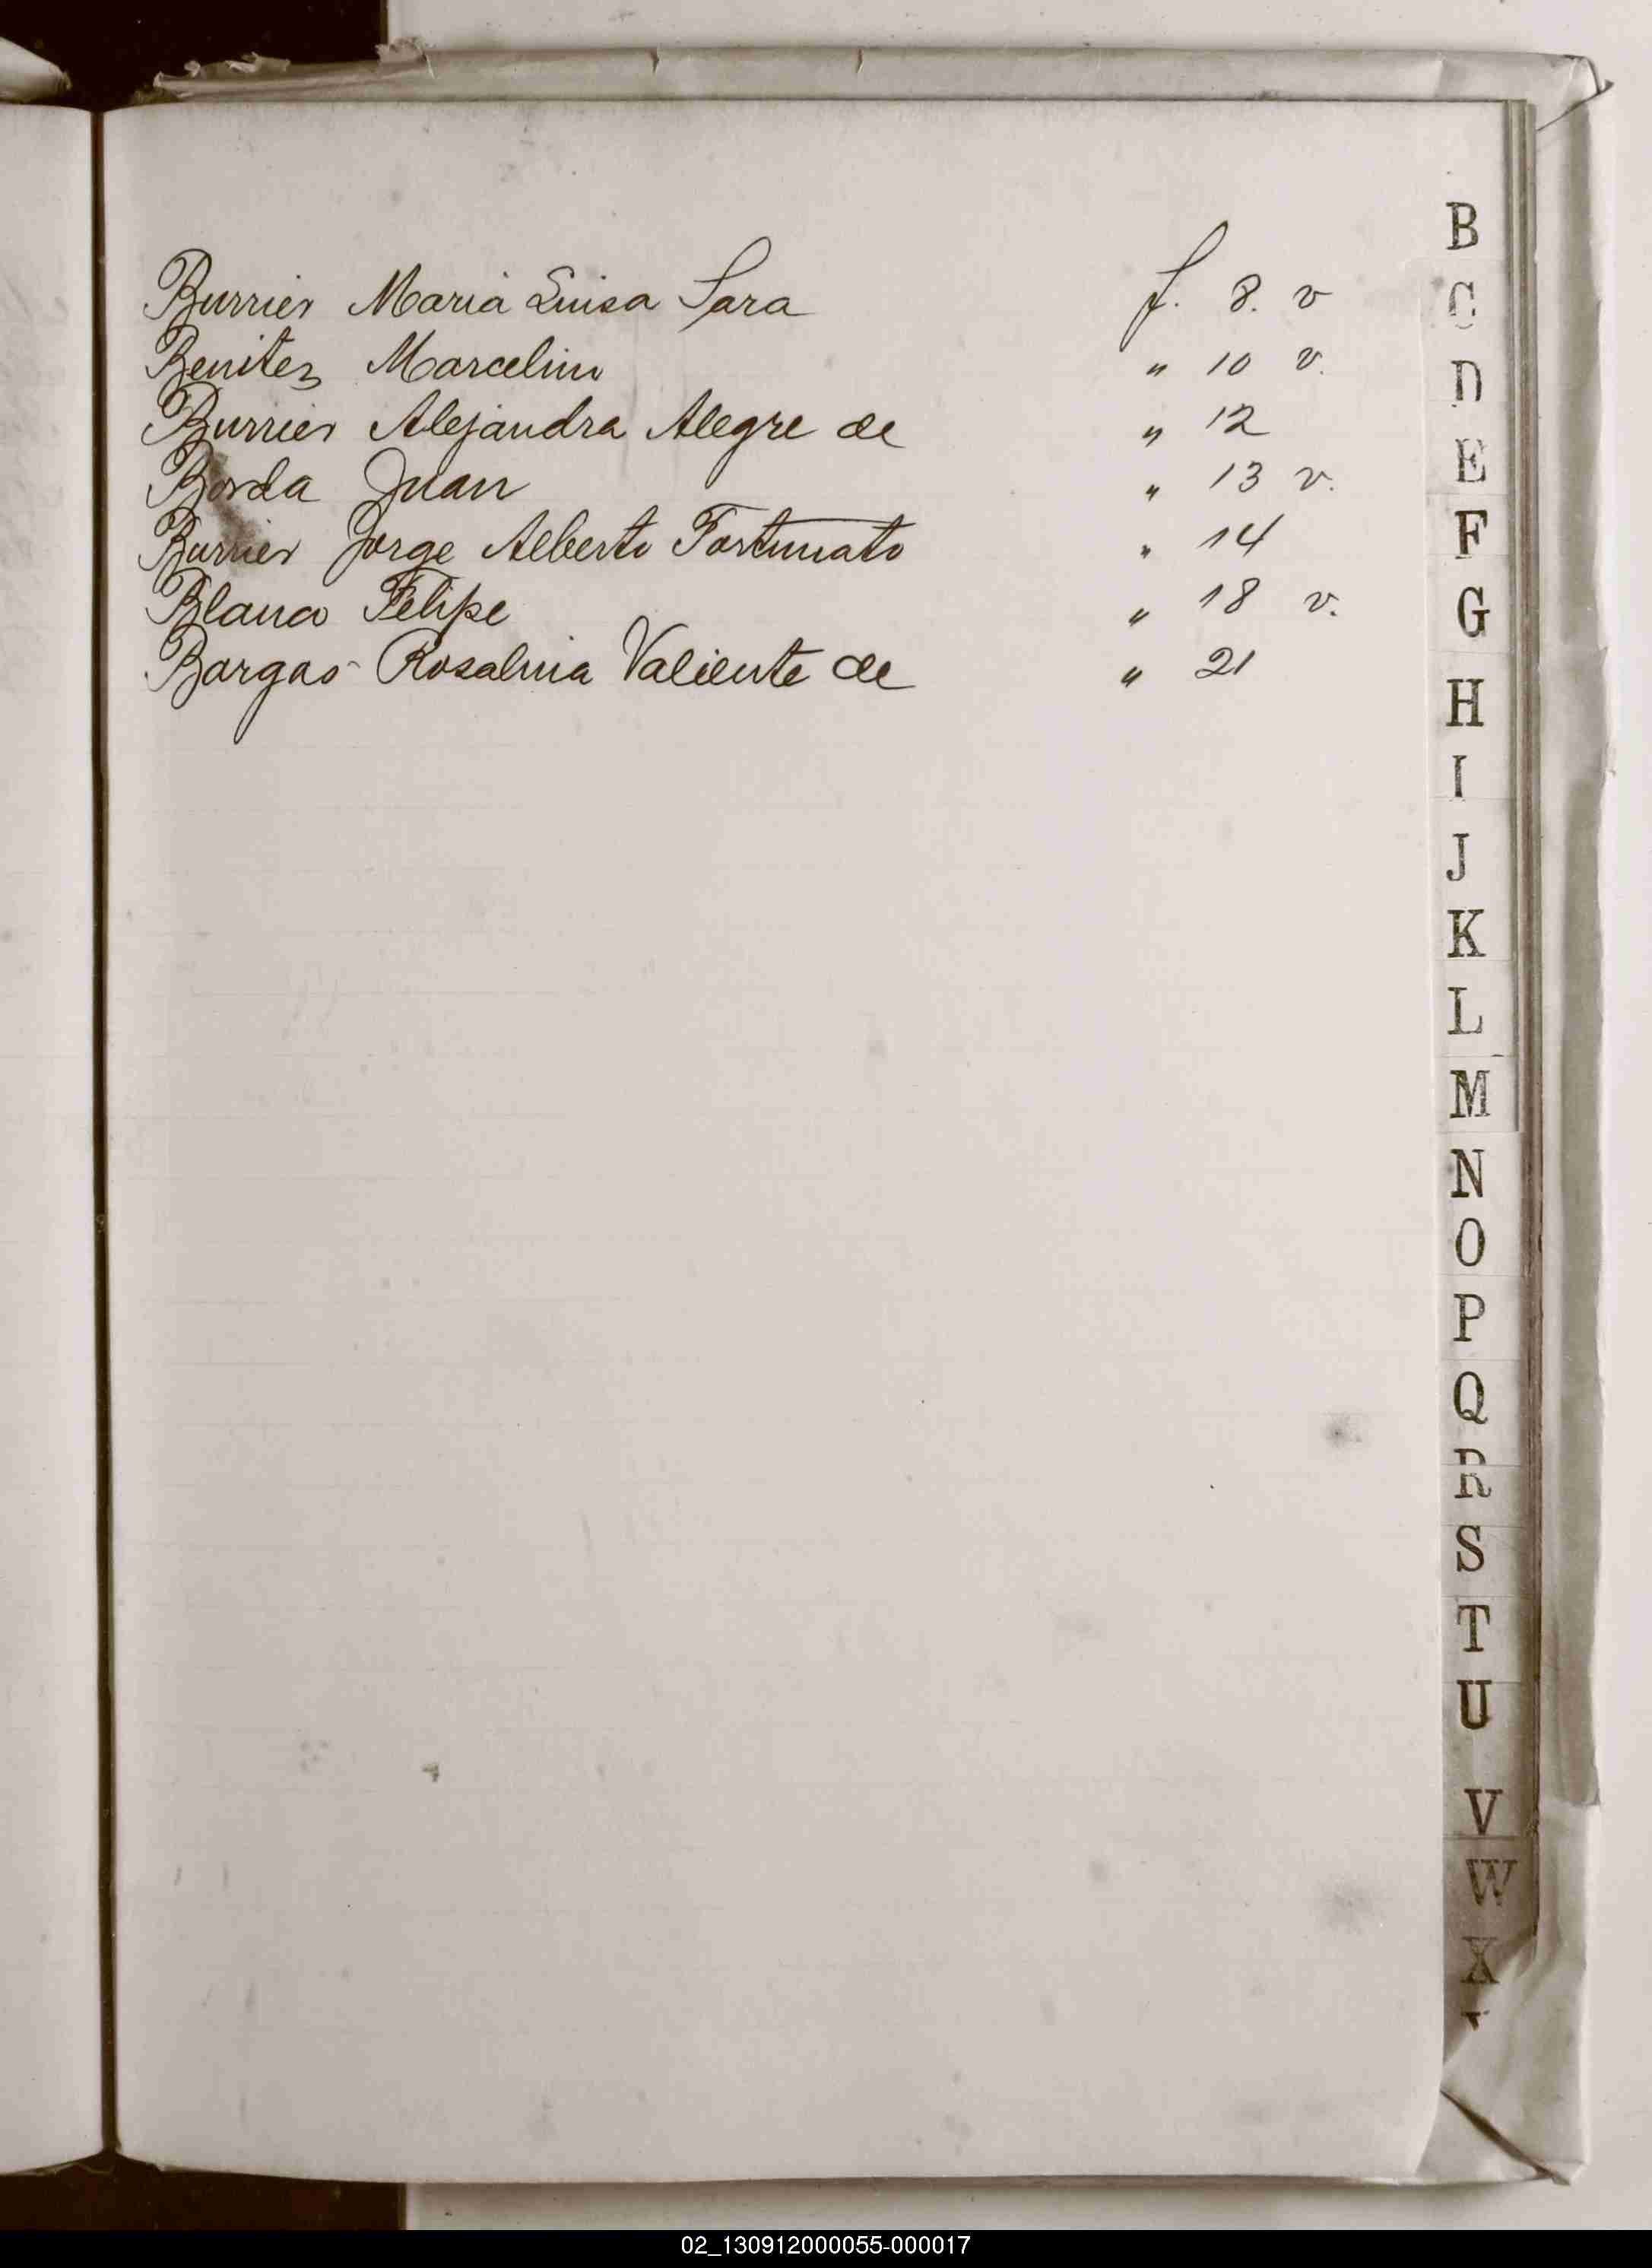 Burrier Maria Luisa Sara f. 8. v
Benitez Marcelino " 10 v.
Burrier Alejandra Alegre de " 12
Borda Juan " 13 v.
Burrier Jorge Alberto Fortunato " 14
Blanco Felipe " 18 v.
Bargas Rosalina Valiente de " 21
B
C
D
E
F
G
H
I
J
K
L
M
N
O
P
Q
R
S
T
U
V
W
X
02_130912000055-000017